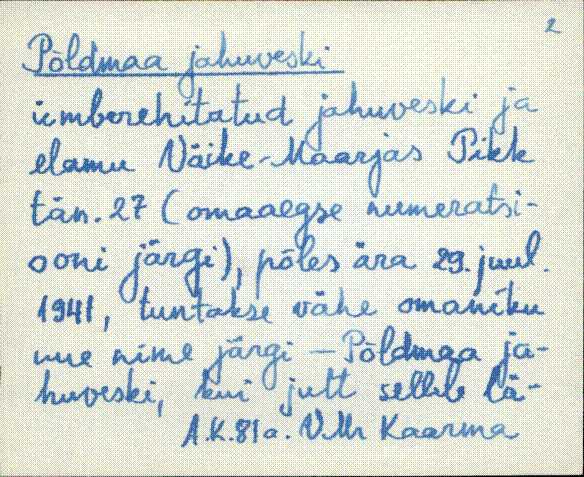 2
Põldmaa jahuveski
ümberehitatud jahuveski ja
elamu Väike-Maarjas Pikk
tän. 27 (omaaegse numeratsi-
ooni järgi), põles ära 29. juul.
1941, tuntakse vähe omaniku
uue nime järgi – Põldmaa ja-
huveski, kui jutt sellele lä-
A.K. 81 a. V.Mr Kaarma